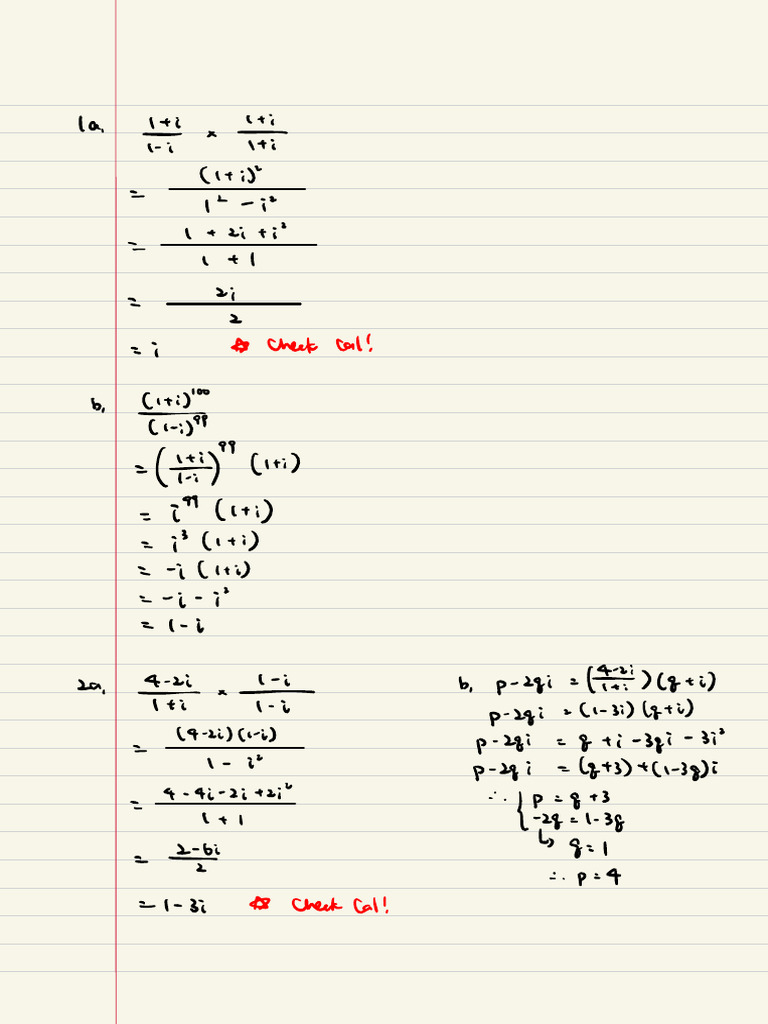 1a. (1+i)/(1-i) × (1+i)/(1+i)
= (1+i)²/(1² - i²)
= (1 + 2i + i²)/(1 + 1)
= 2i/2
= i ☆ Check Cal!
b. (1+i)¹⁰⁰/(1-i)⁹⁹
= ((1+i)/(1-i))⁹⁹ (1+i)
= i⁹⁹ (1+i)
= i³ (1+i)
= -i (1+i)
= -i - i²
= 1 - i
2a. (4-2i)/(1+i) × (1-i)/(1-i)
= (4-2i)(1-i)/(1 - i²)
= (4-4i-2i+2i²)/(1+1)
= (2-6i)/2
= 1-3i ☆ Check Cal!
b. p-2qi = ((4-2i)/(1+i))(q+i)
p-2qi = (1-3i)(q+i)
p-2qi = q + i - 3qi - 3i²
p-2qi = (q+3)+(1-3q)i
∴ { p = q+3
-2q = 1-3q
↳ q = 1
∴ p = 4